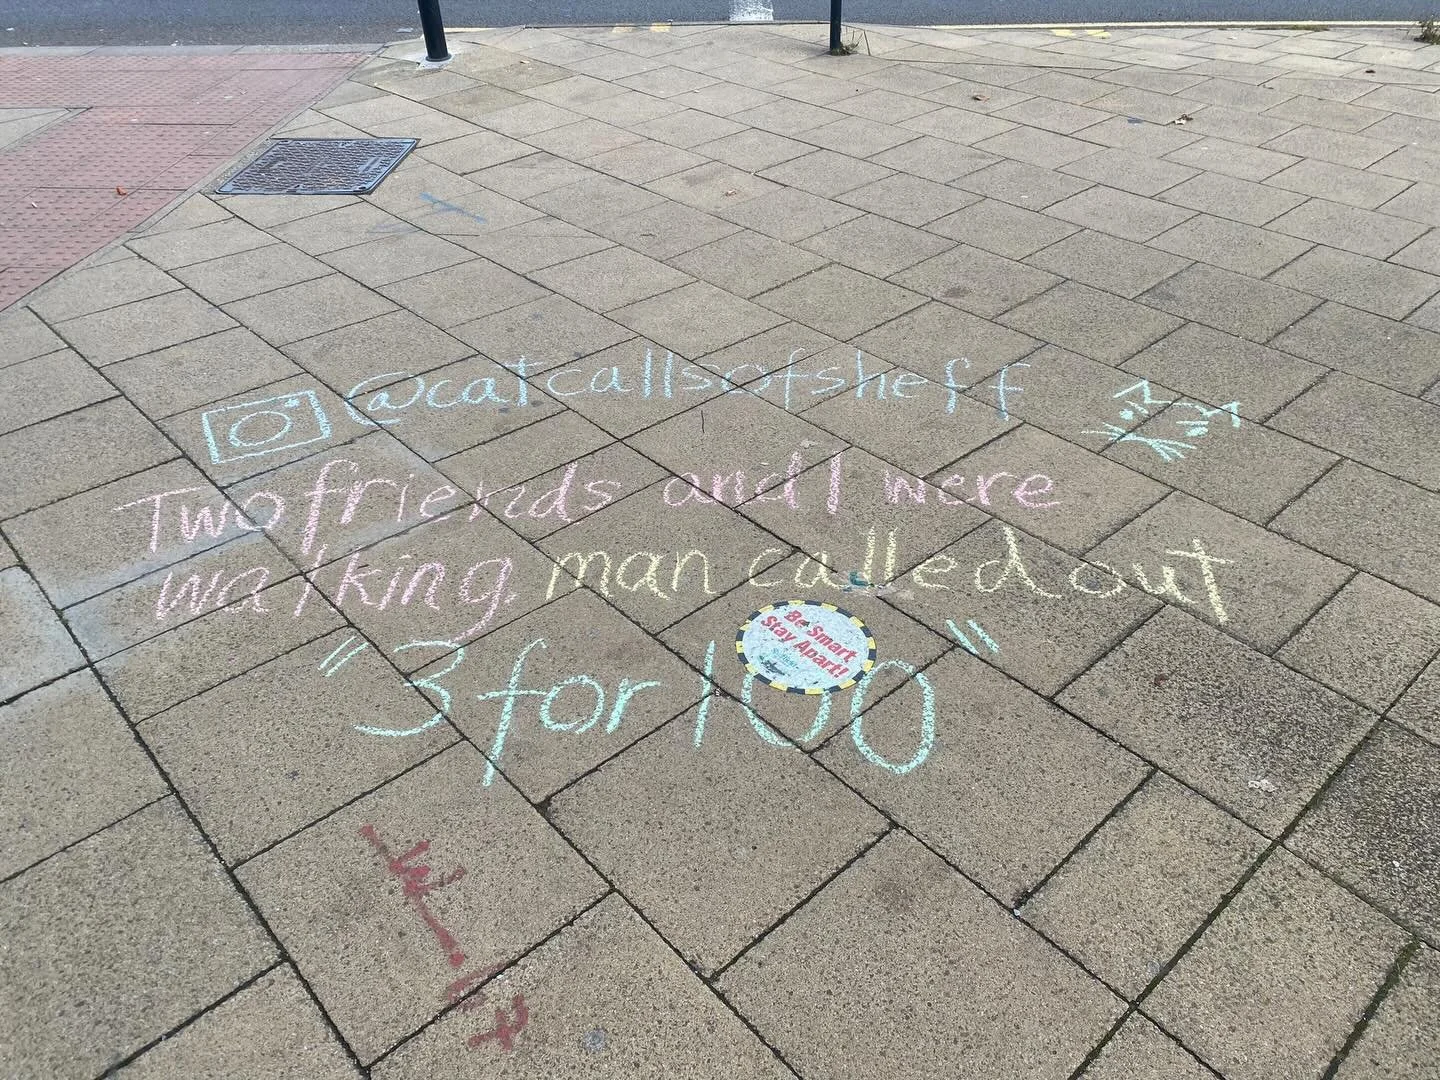 @catcallsofsheff
Two friends and I were
walking, man called out
"3 for 100"
Be Smart
Stay Apart!